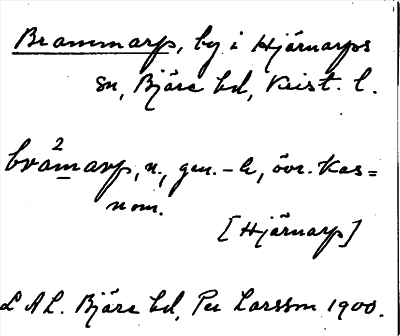 Brammarp, by i Hjärnarps
sn, Bjäre hd, Krist. l.
bram²arp, n., gen. -ɑ, övr. kas=
nom.
[Hjärnarp]
LAL. Bjäre hd, Per Larsson 1900.